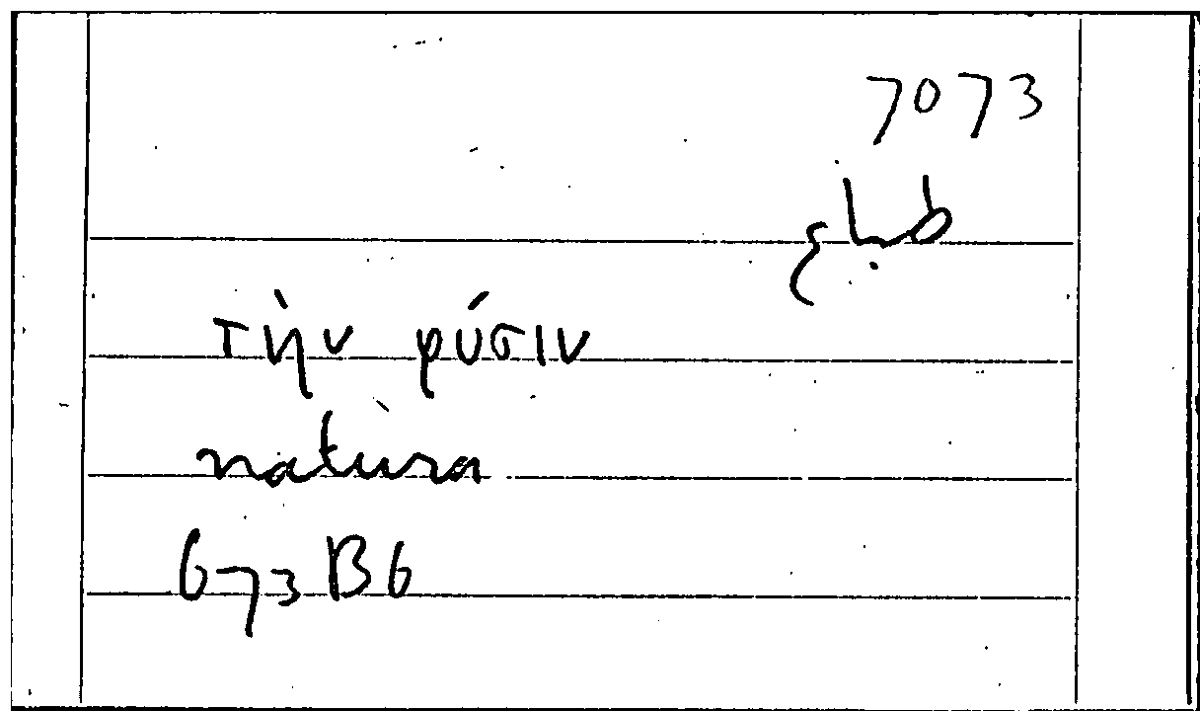 7073
طباع
τὴν φύσιν
natura
673 B6